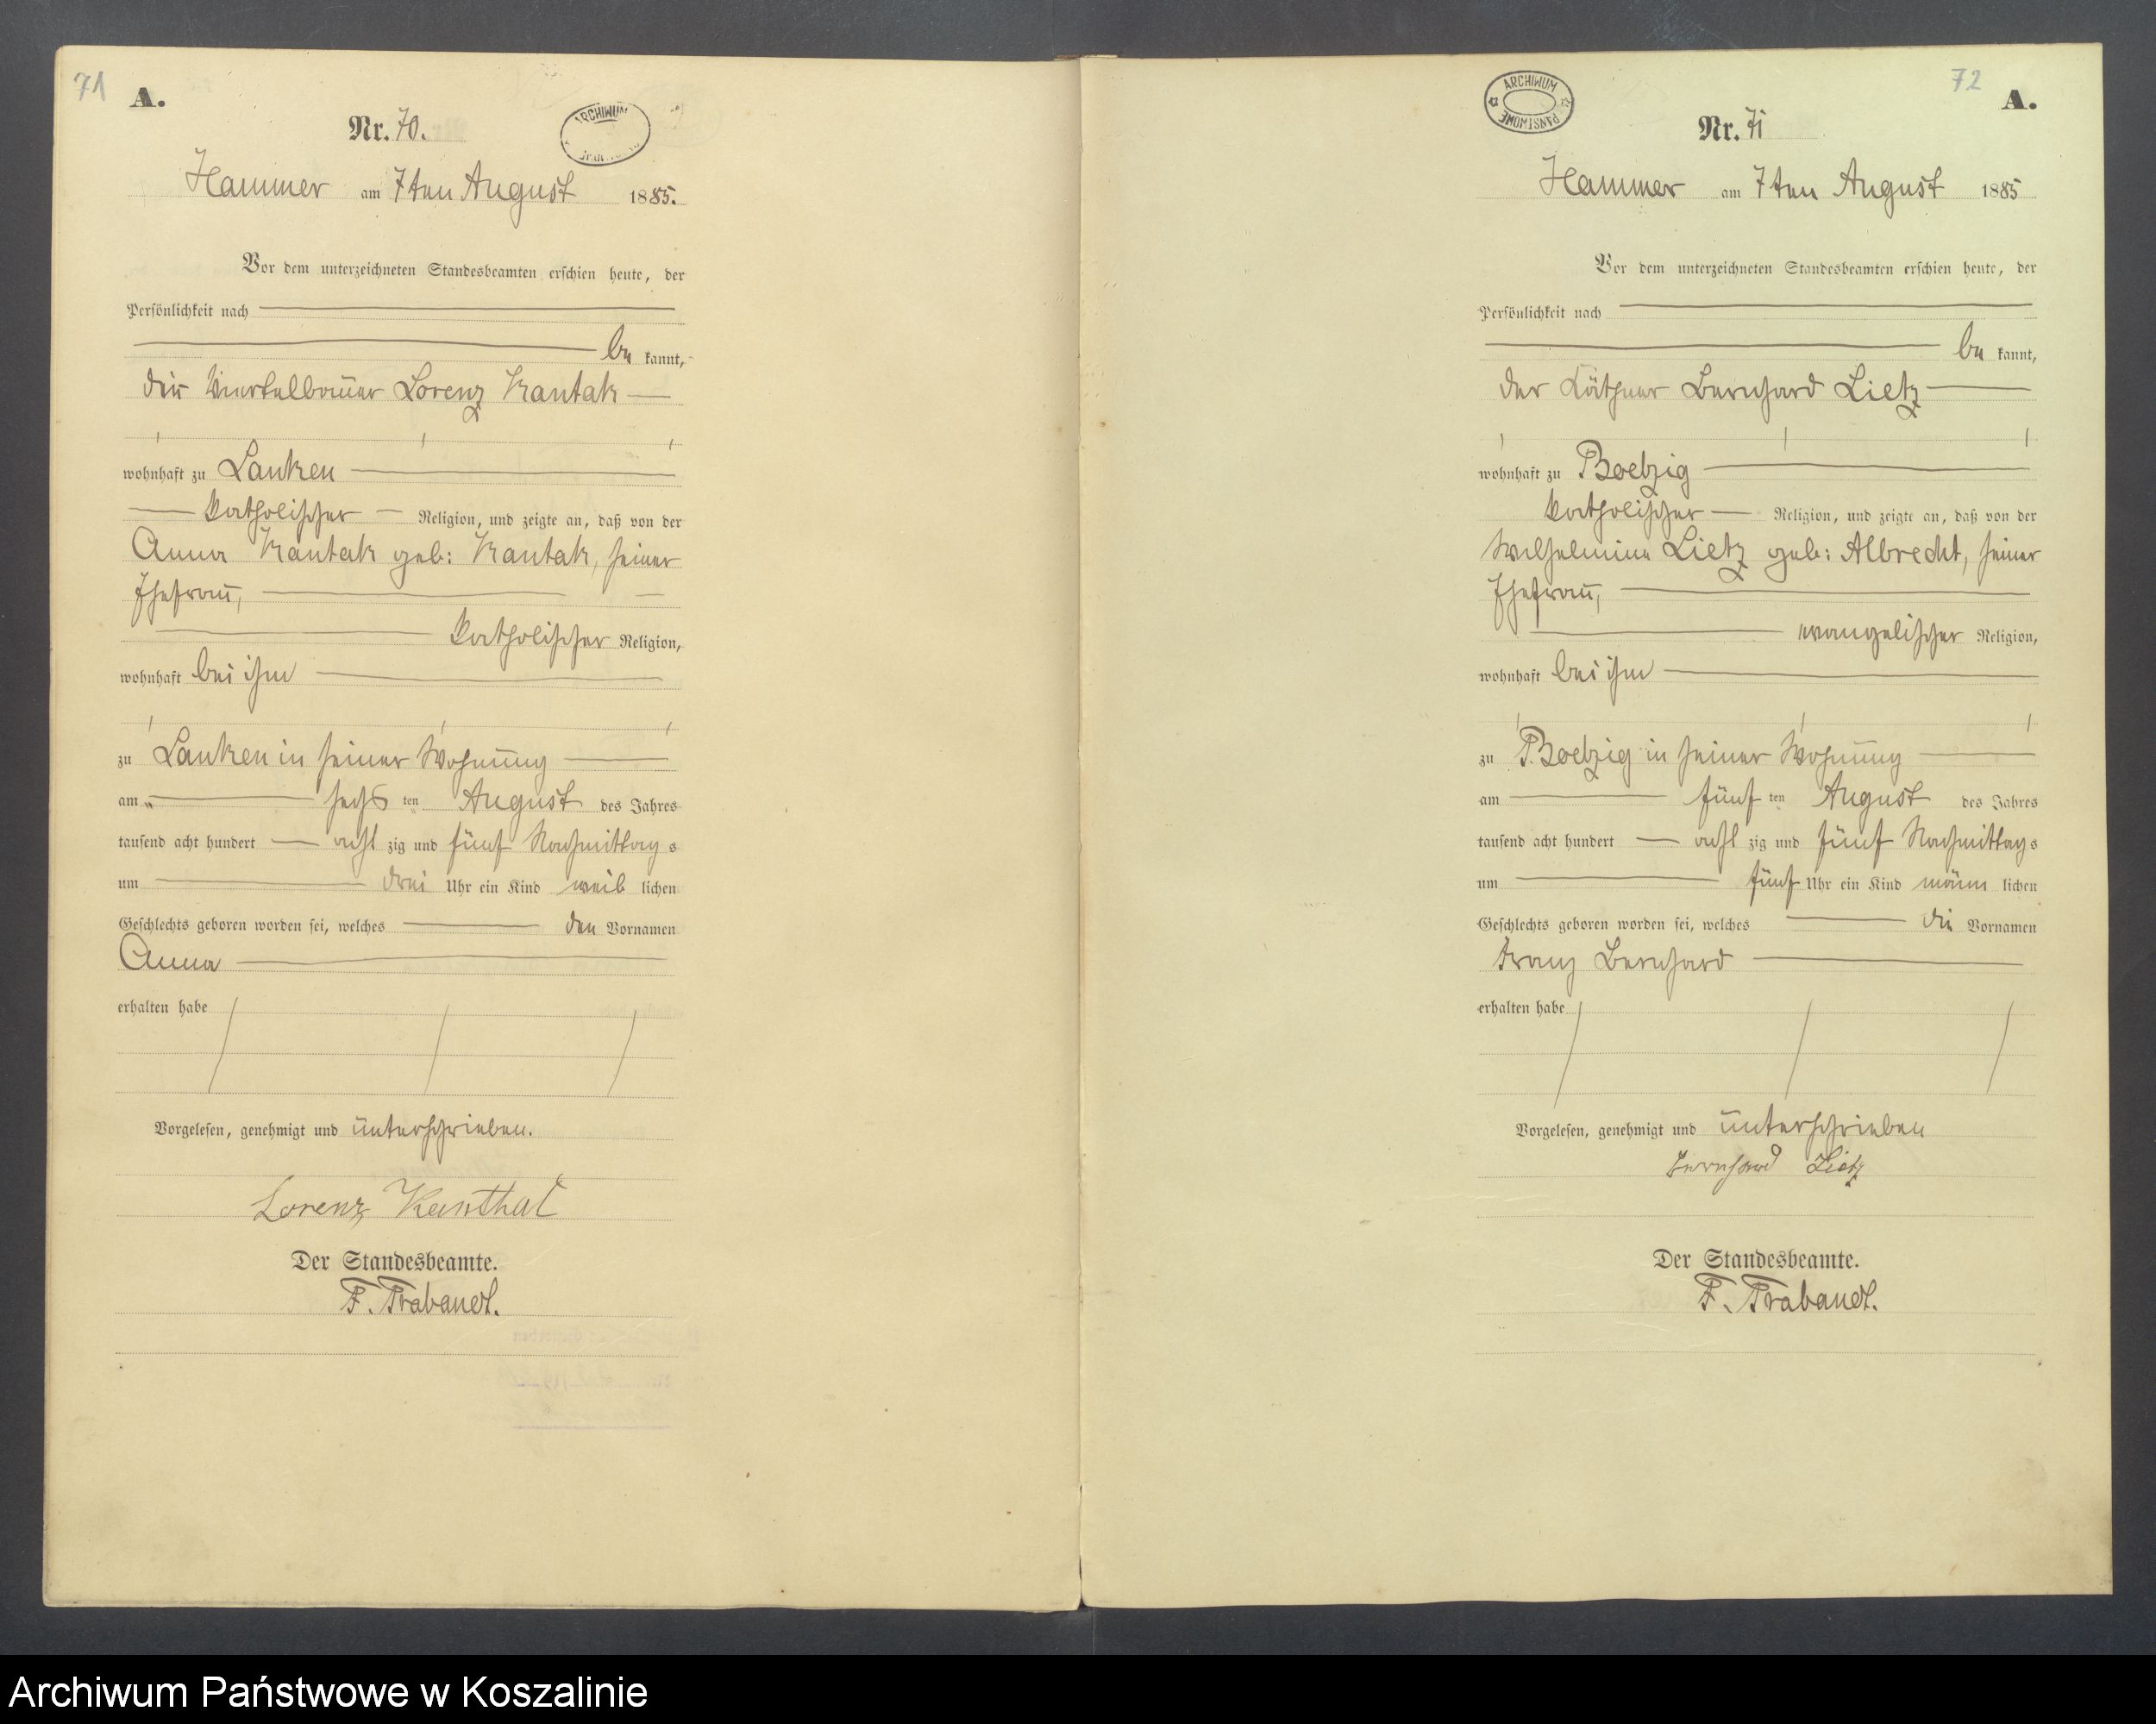 71
A.
Nr. 70.
ARCHIWUM
Hammer am 7ten August 1885.
Vor dem unterzeichneten Standesbeamten erschien heute, der
Persönlichkeit nach
be kannt,
der Viertelbauer Lorenz Kantak
wohnhaft zu Lanken
katholischer Religion, und zeigte an, daß von der
Anna Kantak geb: Kantak, seiner
Ehefrau,
katholischer Religion,
wohnhaft bei ihm
zu Lanken in seiner Wohnung
am sechs ten August des Jahres
tausend acht hundert acht zig und fünf Nachmittags
um drei Uhr ein Kind weib lichen
Geschlechts geboren worden sei, welches den Vornamen
Anna
erhalten habe
Vorgelesen, genehmigt und unterschrieben.
Lorenz Kanthak
Der Standesbeamte.
F. Trabandt.
72
A.
ARCHIWUM PAŃSTWOWE
Nr. 71
Hammer am 7ten August 1885
Vor dem unterzeichneten Standesbeamten erschien heute, der
Persönlichkeit nach
be kannt,
der Käthner Bernhard Lietz
wohnhaft zu Boelzig
katholischer Religion, und zeigte an, daß von der
Wilhelmine Lietz geb: Albrecht, seiner
Ehefrau,
evangelischer Religion,
wohnhaft bei ihm
zu P. Boelzig in seiner Wohnung
am fünf ten August des Jahres
tausend acht hundert acht zig und fünf Nachmittags
um fünf Uhr ein Kind männ lichen
Geschlechts geboren worden sei, welches die Vornamen
Franz Bernhard
erhalten habe
Vorgelesen, genehmigt und unterschrieben
Bernhard Lietz
Der Standesbeamte.
F. Trabandt.
Archiwum Państwowe w Koszalinie